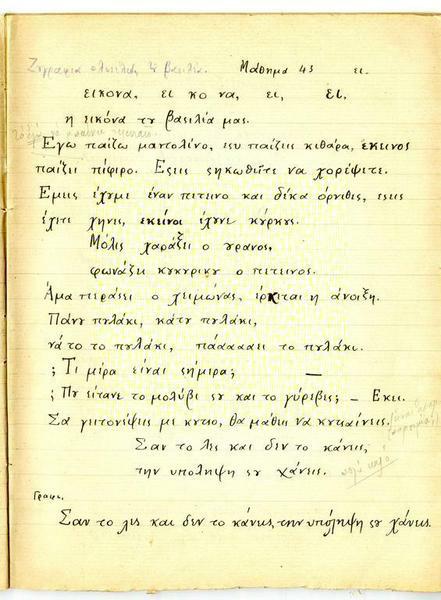 Μάθημα 43 ει.
εικονα, ει κο να, ει, ει,
η εικόνα τυ βασιλία μας.
Εγω παίζω μαντολίνο, εςυ παίζις κιθάρα, έκεινος
παίζει πίφιρο. Εςεις ςηκωθῖτε να χορέψετε.
Εμεις έχυμε έναν πιτεινο και δέκα όρνιθες, εςεις
έχετε χήνες, εκείνοι έχυνε κύρκυς.
Μόλις χαράξει ο υρανος,
φωνάζει κυκυρικυ ο πιτεινος.
Άμα περάσει ο χειμώνας, έρκιται η άνοιξη.
Πάνυ πυλάκι, κάτυ πυλάκι,
νά το το πυλάκι, πάαααάει το πυλάκι.
; Τι μέρα είναι ςήμερα; —
; Πυ είτανε το μολύβι ςυ και το γύρεβες; – Εκει.
Σα γειτονέψεις με κυτςο, θα μάθεις να κυτςαίνεις.
Σαν το λες και δεν το κάνεις,
την υποληψη ςυ χάνεις.
πολύ καλο
Γραφη.
Σαν το λις και δεν το κάνις, την υπόληψη ςυ χάνις.